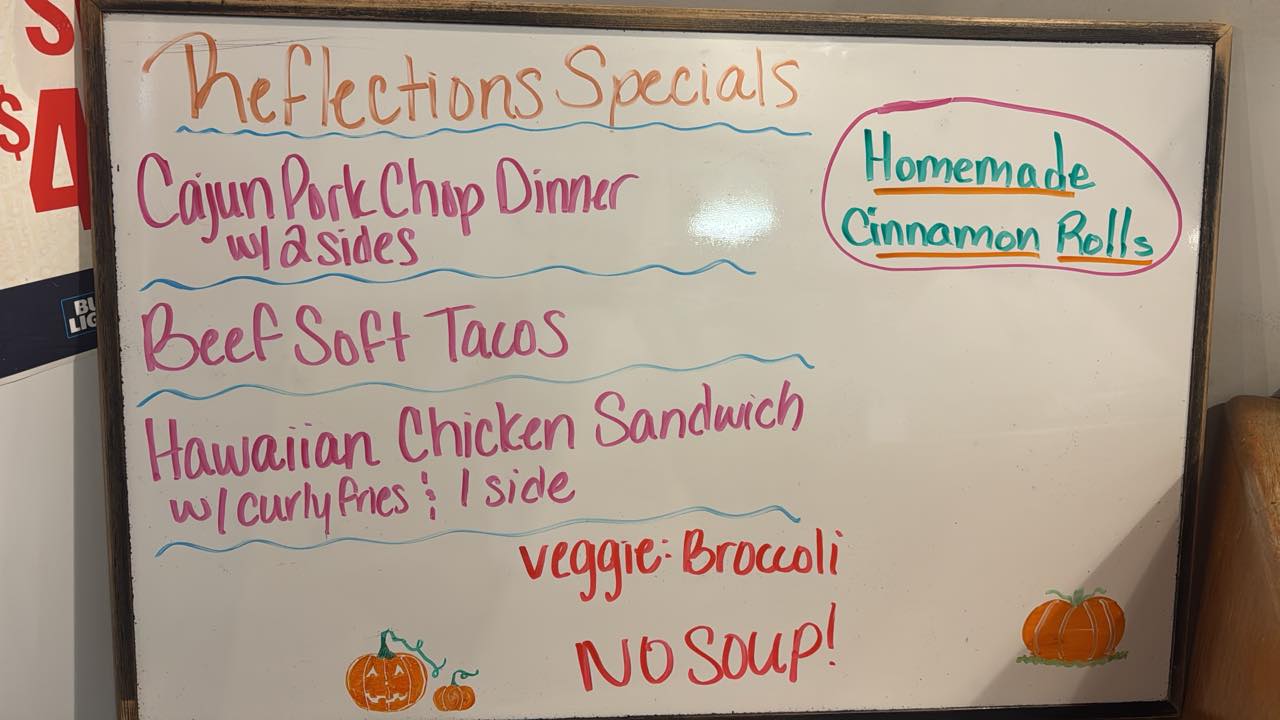 Reflections Specials
Cajun Pork Chop Dinner
w/ 2 sides
Beef Soft Tacos
Hawaiian Chicken Sandwich
w/ curly fries & 1 side
veggie: Broccoli
NO SOUP!
Homemade
Cinnamon Rolls
$4